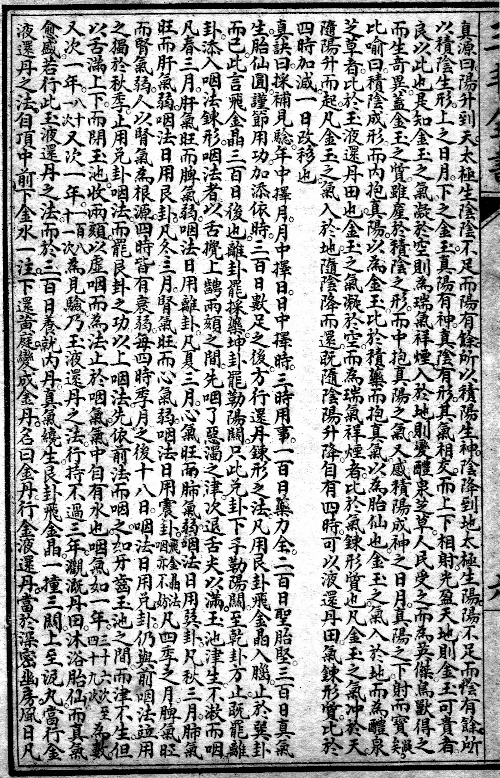 真源曰陽升到天太極生陰陰不足而陽有餘所以積陽生神陰降到地太極生陽陽不足而陰有餘所
以積陰生形上之日月下之金玉真陽有神真陰有形其氣相交而上下相射光盈天地則金玉可貴者
良以此也是知金玉之氣凝於空則為瑞氣祥煙入於地則變醴泉芝草人民受之而為英傑鳥獸得之
而生奇異蓋金玉之質雖產於積陰之形而中抱真陽之氣又感積陽成神之日月真陽之下射而寶凝矣
此喻曰積陰成形而內抱真陽以為金玉比於積藥而抱真氣以為胎仙也金玉之氣入於地而為醴泉
芝草者比於玉液還丹田也金玉之氣凝於空而為瑞氣祥煙者比於氣鍊形質也凡金玉之氣冲於天
隨陽升而起凡金玉之氣入於地隨陰降而還既隨陰陽升降自有四時可以液還丹田氣鍊形質比於
四時加減一日改移也
真訣曰採補見驗年中擇月月中擇日日中擇時三時用事一百日藥力全二百日聖胎堅三百日真氣
生胎仙圓謹節用功加添依時三百日數足之後方行還丹鍊形之法凡用艮卦飛金晶入腦止於巽卦
而已此言飛金晶三百日後也離卦罷採藥坤卦罷勒陽關只此兌卦下手勒陽關至乾卦方止既罷離
卦添入咽法鍊形咽法者以舌攪上齶兩頰之間先咽了惡濁之津次退舌尖以滿玉池津生不漱而咽
凡春三月肝氣旺而脾氣弱咽法日用離卦凡夏三月心氣旺而肺氣弱咽法日用巽卦凡秋三月肺氣
旺而肝氣弱咽法日用艮卦凡冬三月腎氣旺而心氣弱咽法日用震卦飛金晶法咽亦不妨凡四季之月脾氣旺
而腎氣弱人以腎氣為根源四時皆有衰弱每四時季月之後十八日咽法日用兌卦仍與前咽法並用
之獨於秋季止用兌卦咽法而罷艮卦之功以上咽法先依前法而咽之如牙齒玉池之間而津不生但
以舌滿上下而閉玉池收兩頰以虛咽而為法止於咽氣氣中自有水也咽氣如一年三十六次至四十九次為數
又次一年八十一次又次一年一百八十一次為見驗乃玉液還丹之法行持不過三年灌溉丹田沐浴胎仙而真氣
愈盛若行此玉液還丹之法而於三百日養就內丹真氣纔生艮卦飛金晶一撞三關上至泥丸當行金
液還丹之法自頂中前下金水一注下還黃庭變成金丹名曰金丹行金液還丹當於深密幽房風日凡